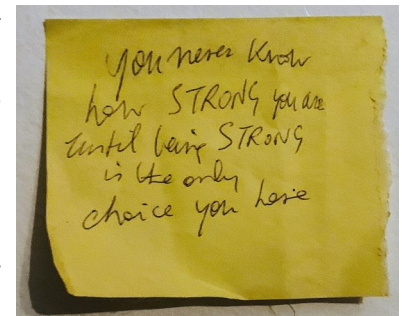 you never know
how STRONG you are
until being STRONG
is the only
choice you have